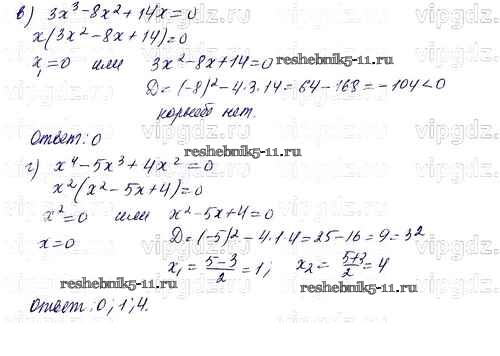 в) 3x³-8x²+14x=0
x(3x²-8x+14)=0
x₁=0 или 3x²-8x+14=0
D=(-8)²-4·3·14=64-168=-104<0
корней нет.
Ответ: 0
г) x⁴-5x³+4x²=0
x²(x²-5x+4)=0
x²=0 или x²-5x+4=0
x=0 D=(-5)²-4·1·4=25-16=9=3²
x₁=(5-3)/2=1; x₂=(5+3)/2=4
Ответ: 0; 1; 4.
reshebnik5-11.ru
reshebnik5-11.ru
reshebnik5-11.ru
reshebnik5-11.ru
vipgdz.ru